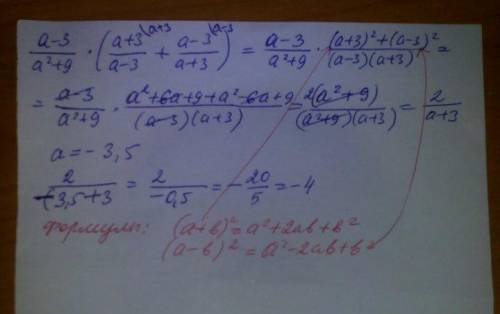 a-3/a²+9 · (a+3/a-3 \a+3 + a-3/a+3 \a-3) = a-3/a²+9 · (a+3)²+(a-3)²/(a-3)(a+3) =
= a-3/a²+9 · a²+6a+9+a²-6a+9/(a-3)(a+3) = 2(a²+9)/(a²+9)(a+3) = 2/a+3
a = -3,5
2/-3,5+3 = 2/-0,5 = -20/5 = -4
формулы: (a+b)² = a²+2ab+b²
(a-b)² = a²-2ab+b²